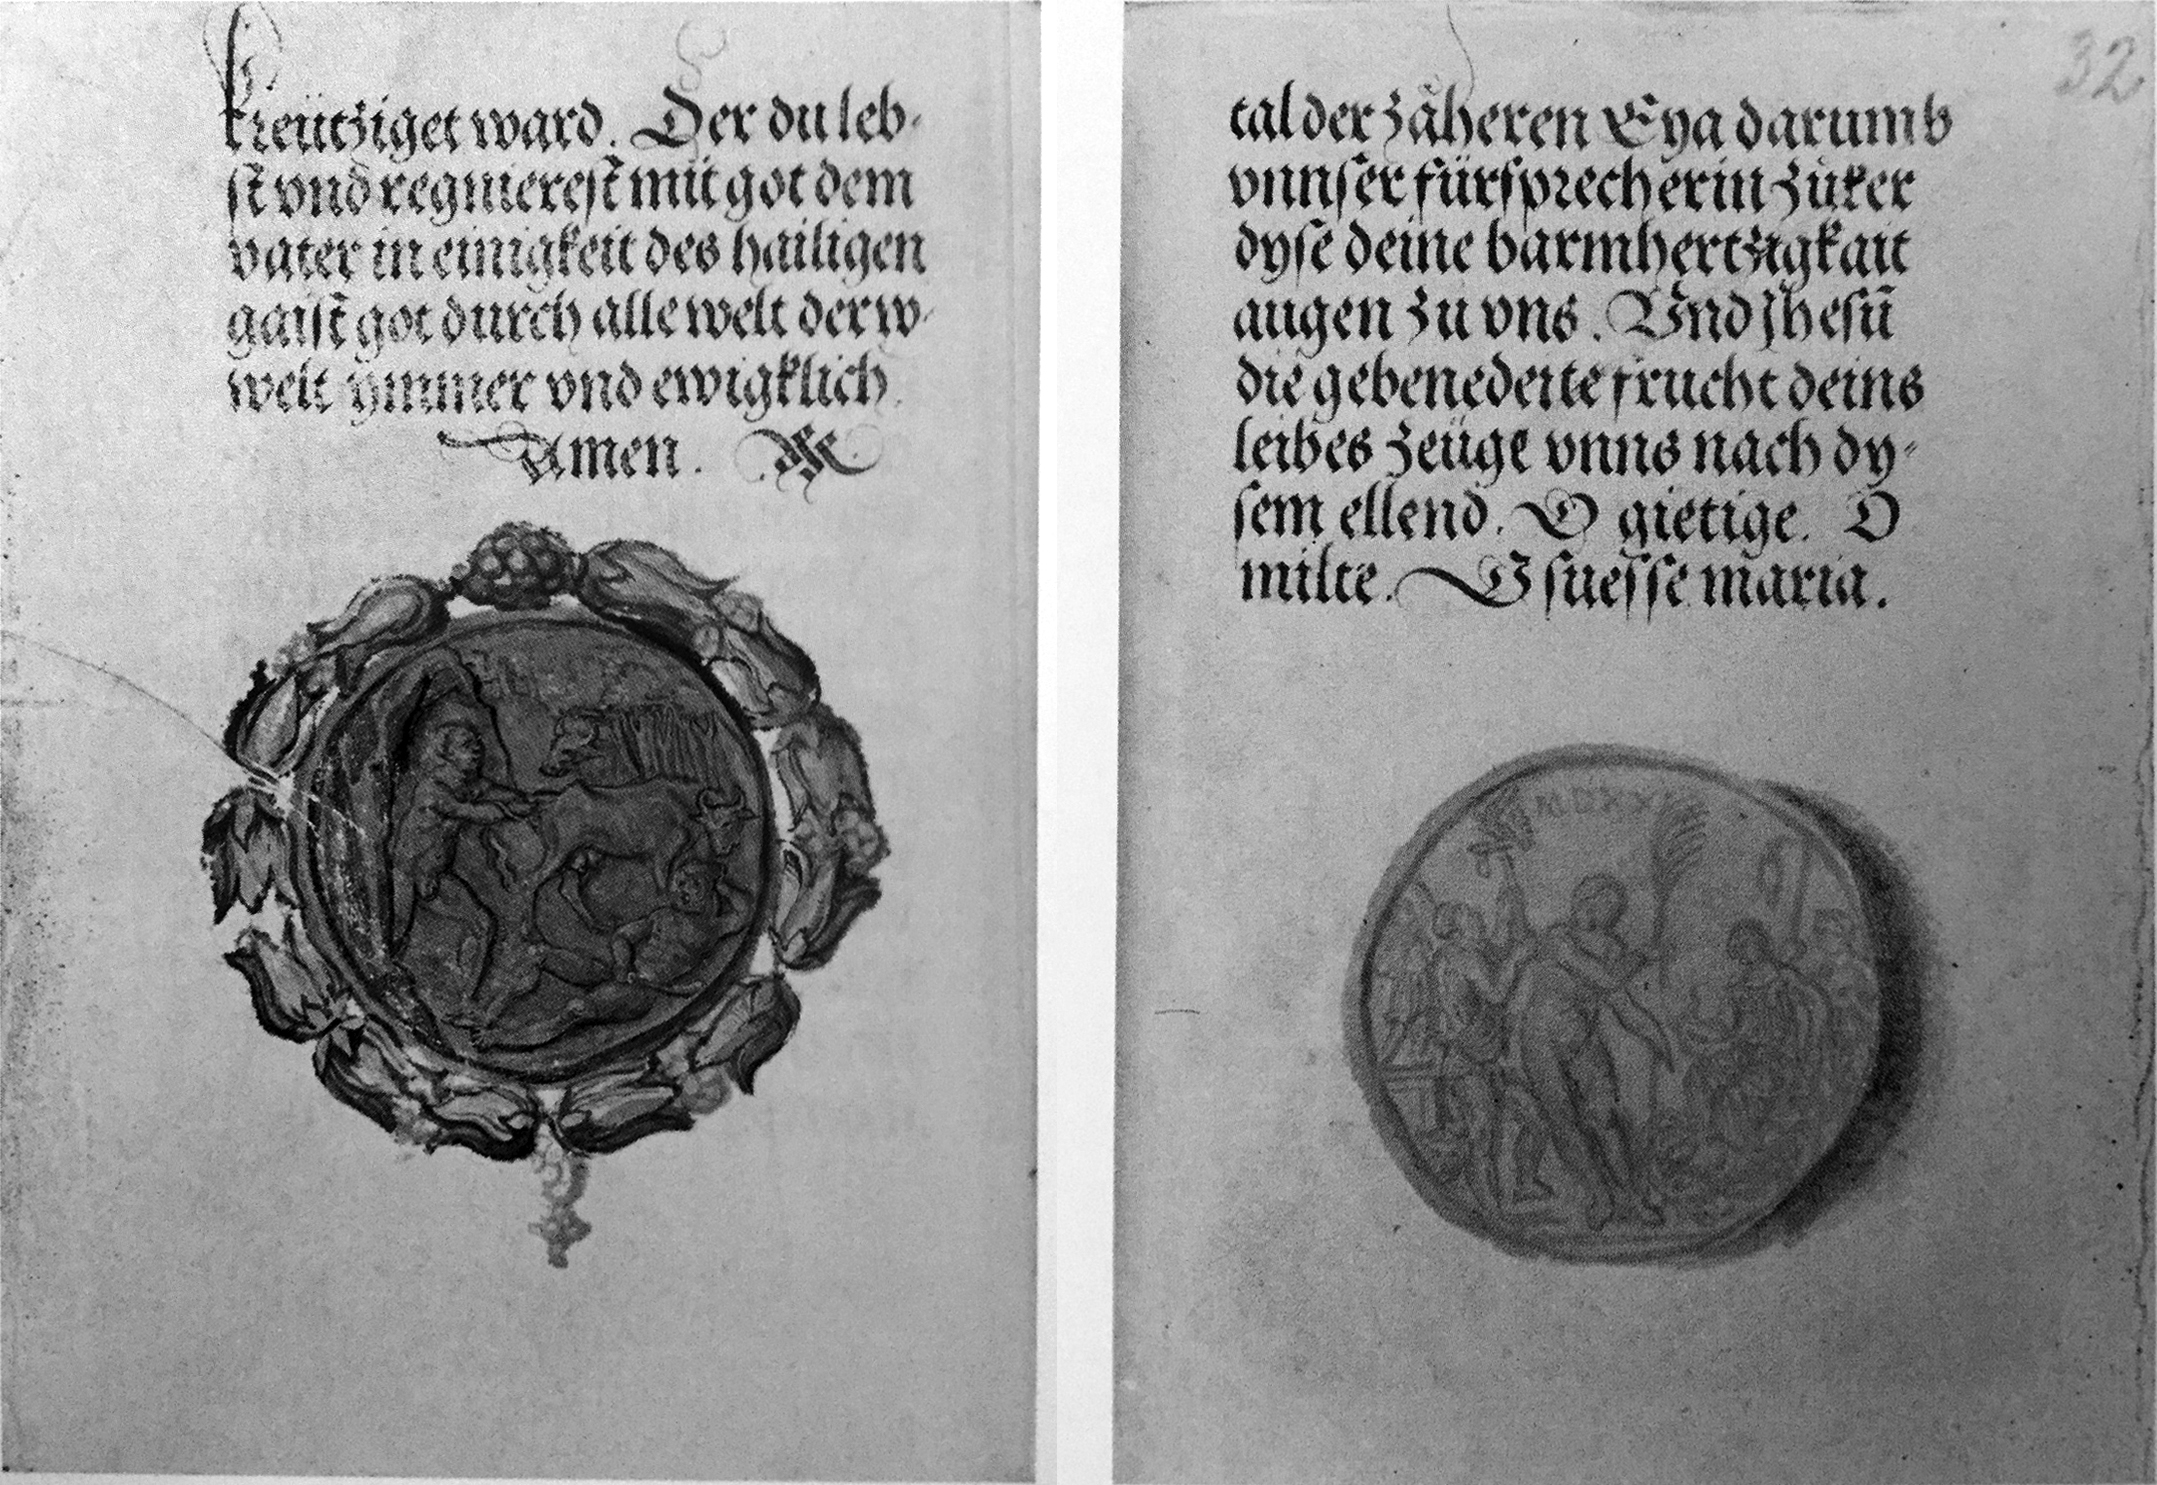 kreütziget ward. Der du leb-
st vnd regnierest mit got dem
vater in einigkeit des hailigen
gaist got durch alle welt der w-
welt ymmer vnd ewigklich.
Amen.
32
tal der zäheren Eya darumb
vnnser fürsprecherin zuker
dyse deine barmhertzigkait
augen zu vns. Vnd Jhesu
die gebenedeite frucht deins
leibes zeüge vnns nach dy-
sem ellend. O gietige. O
milte. O suesse maria.